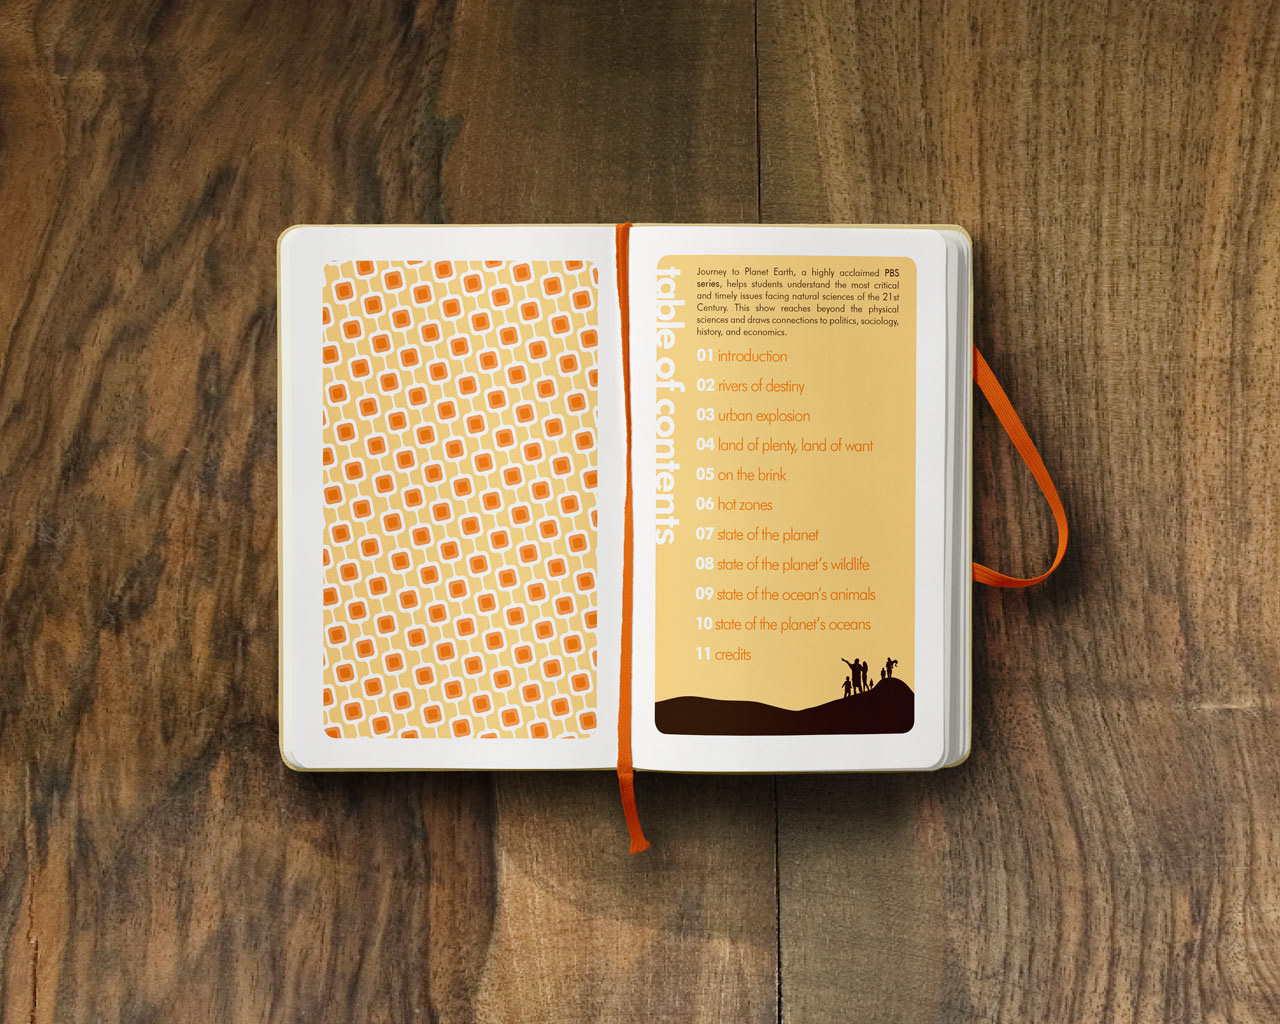 table of contents
Journey to Planet Earth, a highly acclaimed PBS
series, helps students understand the most critical
and timely issues facing natural sciences of the 21st
Century. This show reaches beyond the physical
sciences and draws connections to politics, sociology,
history, and economics.
01 introduction
02 rivers of destiny
03 urban explosion
04 land of plenty, land of want
05 on the brink
06 hot zones
07 state of the planet
08 state of the planet's wildlife
09 state of the ocean's animals
10 state of the planet's oceans
11 credits